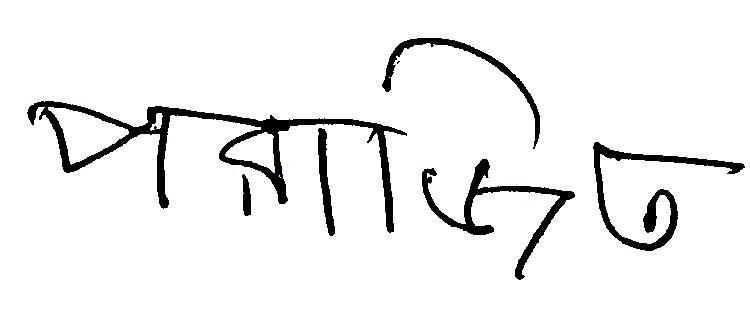 পরাজিত